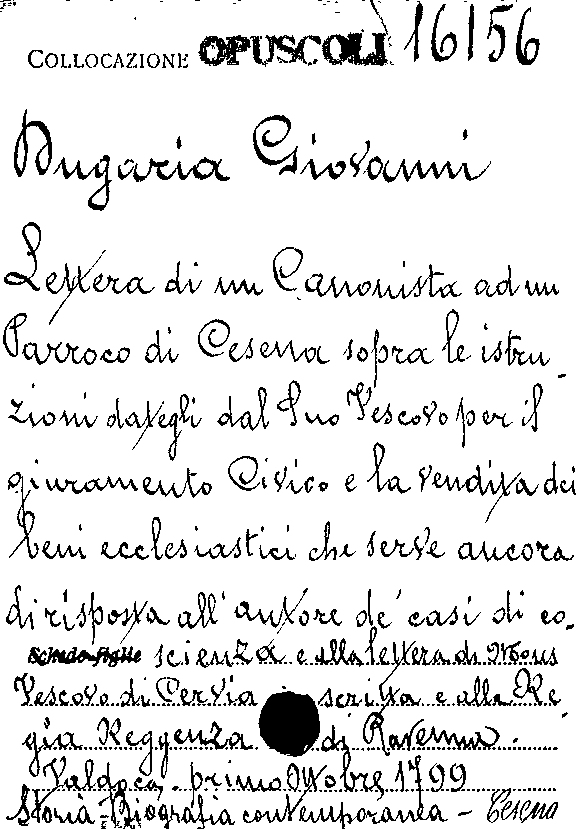 COLLOCAZIONE OPUSCOLI 16156
Dugaria Giovanni
Lettera di un Canonista ad un
Parroco di Cesena sopra le istru-
zioni dategli dal Suo Vescovo per il
giuramento Civico e la vendita dei
beni ecclesiastici che serve ancora
di risposta all'autore de' casi di co-
scienza e alla lettera di Mons
Vescovo di Cervia scritta e alla Re-
gia Reggenza di Ravenna.
Valdoca, primo Ottobre 1799
Storia - Biografia contemporanea - Cesena